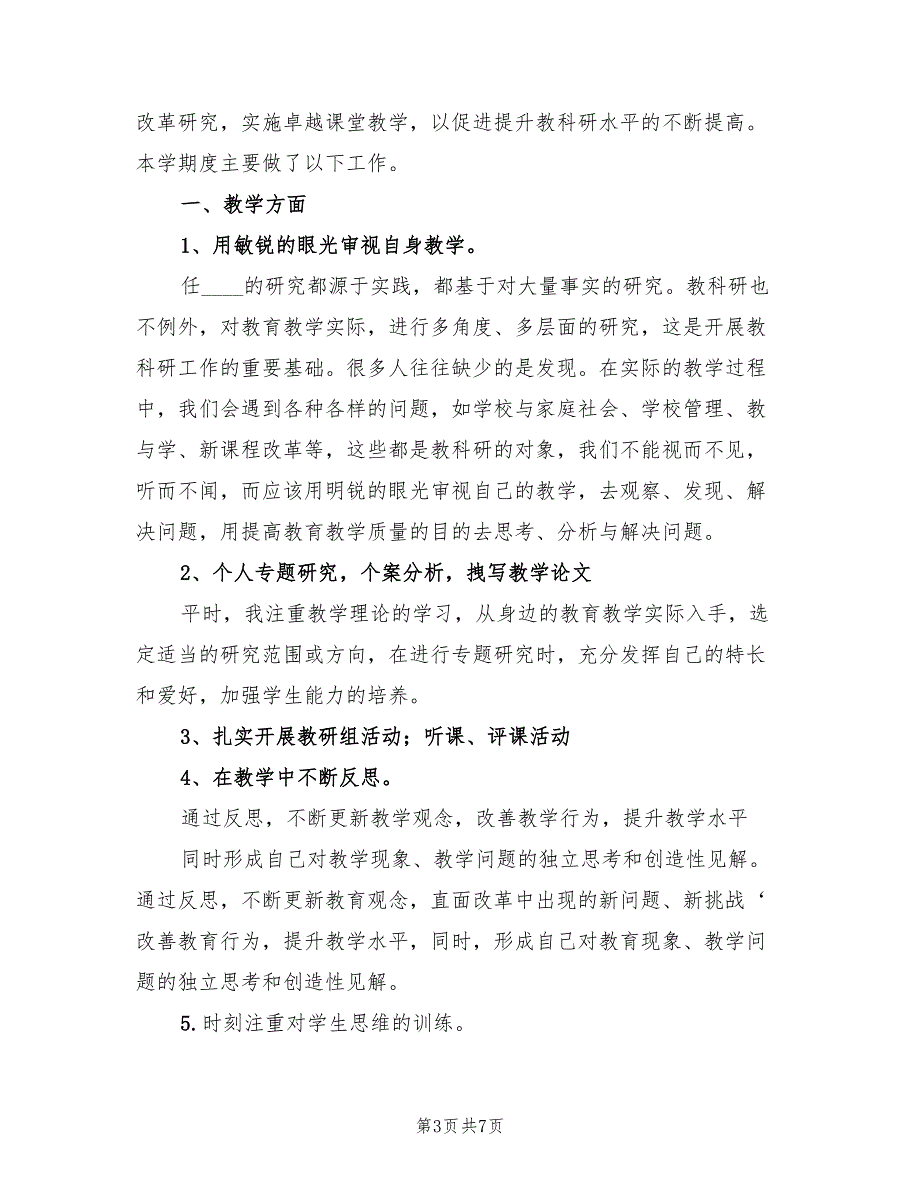 改革研究，实施卓越课堂教学，以促进提升教科研水平的不断提高。
本学期度主要做了以下工作。
一、教学方面
1、用敏锐的眼光审视自身教学。
任____的研究都源于实践，都基于对大量事实的研究。教科研也
不例外，对教育教学实际，进行多角度、多层面的研究，这是开展教
科研工作的重要基础。很多人往往缺少的是发现。在实际的教学过程
中，我们会遇到各种各样的问题，如学校与家庭社会、学校管理、教
与学、新课程改革等，这些都是教科研的对象，我们不能视而不见，
听而不闻，而应该用明锐的眼光审视自己的教学，去观察、发现、解
决问题，用提高教育教学质量的目的去思考、分析与解决问题。
2、个人专题研究，个案分析，拽写教学论文
平时，我注重教学理论的学习，从身边的教育教学实际入手，选
定适当的研究范围或方向，在进行专题研究时，充分发挥自己的特长
和爱好，加强学生能力的培养。
3、扎实开展教研组活动；听课、评课活动
4、在教学中不断反思。
通过反思，不断更新教学观念，改善教学行为，提升教学水平
同时形成自己对教学现象、教学问题的独立思考和创造性见解。
通过反思，不断更新教育观念，直面改革中出现的新问题、新挑战‘
改善教育行为，提升教学水平，同时，形成自己对教育现象、教学问
题的独立思考和创造性见解。
5.时刻注重对学生思维的训练。
第3页共7页